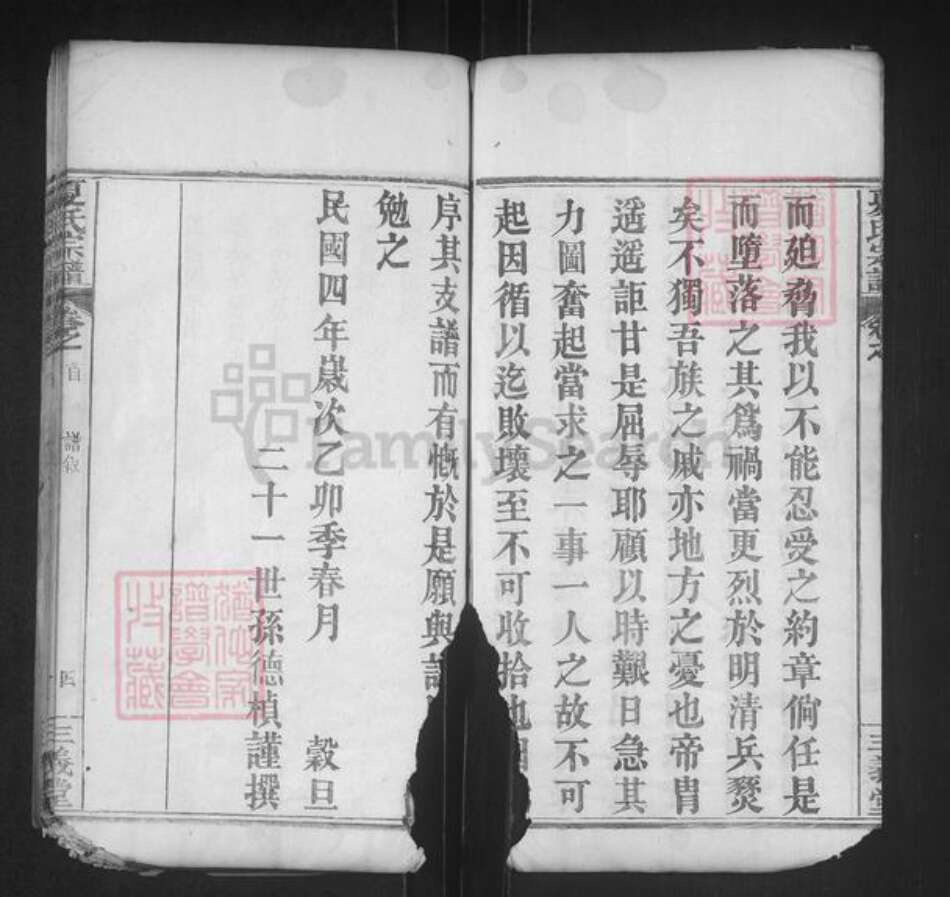 而廹脅我以不能忍受之約章倘任是
而墮落之其爲禍當更烈於明清兵燹
矣不獨吾族之戚亦地方之憂也帝胄
遥遥詎甘是屈辱耶顧以時艱日急其
力圖奮起當求之一事一人之故不可
起因循以迄敗壞至不可收拾也
序其支譜而有慨於是願與
勉之
民國四年歲次乙卯季春月 穀旦
二十一世孫德楨謹撰
夏氏宗譜
卷之首
譜敘
四
三義堂
FamilySearch
譜學會
收藏